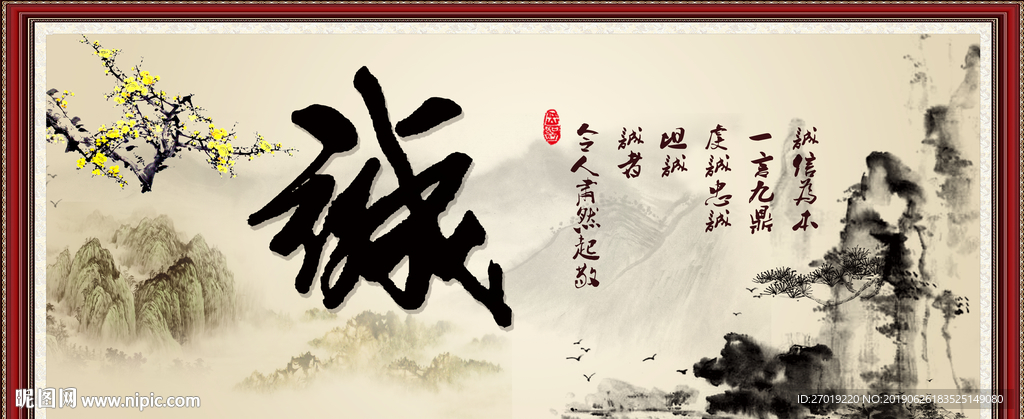 誠
誠信為本
一言九鼎
虔誠忠誠
坦誠
誠者
令人肅然起敬
昵图网 www.nipic.com
ID:27019220 NO:20190626183525149080